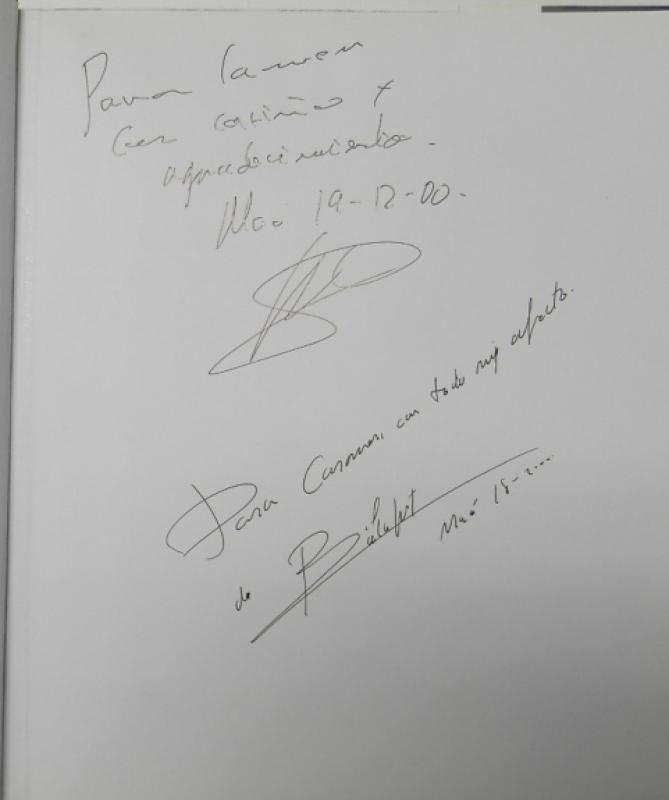 Para Carmen
Con cariño y
agradecimiento.
Maó 19-12-00.
Para Carmen, con todo mi afecto.
de
Maó 18-2...